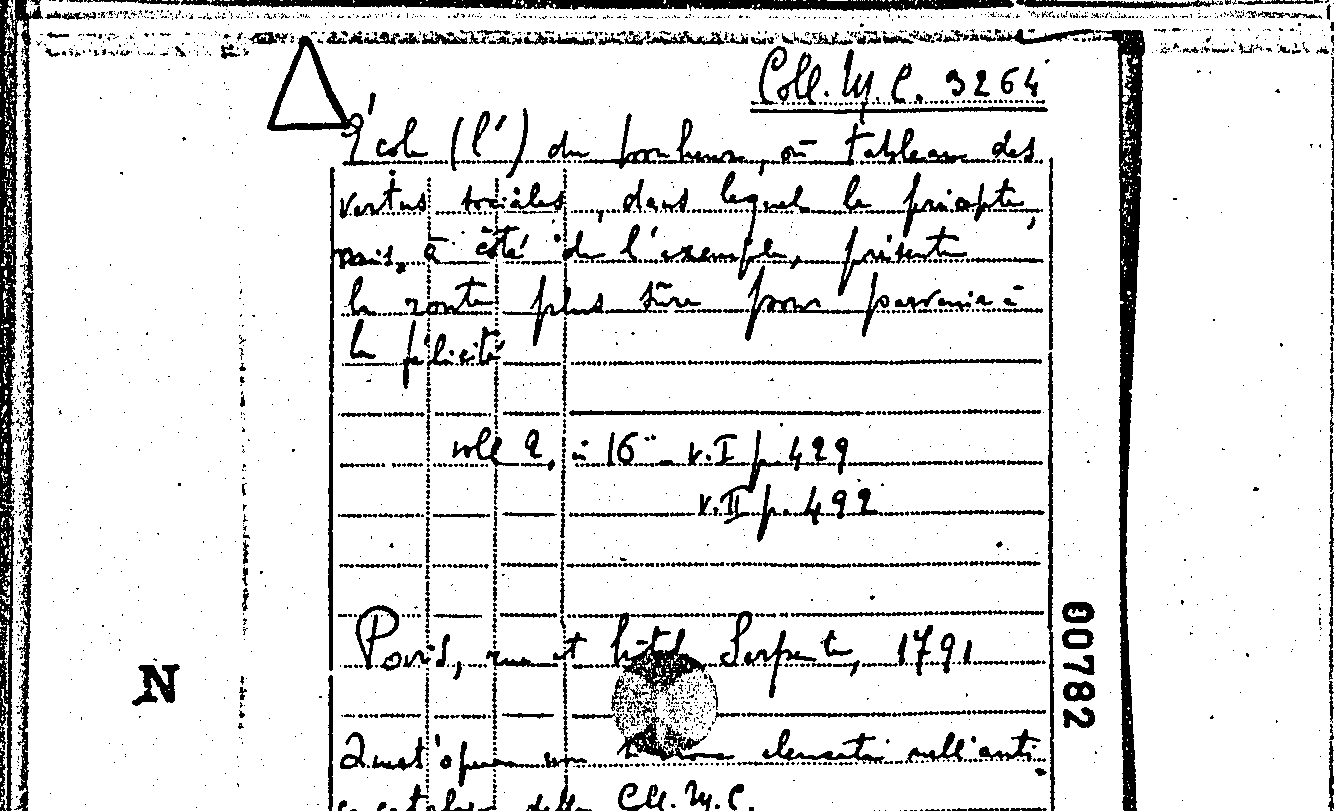 Coll. M. C. 3264
École (l') du bonheur, ou tableau des
vertus sociales, dans lequel le précepte,
mis, à côté de l'exemple, présente
la route plus sûre pour parvenir à
la félicité
voll 2, in 16° v. I p. 429
v. II p. 492
Paris, rue et hôtel Serpente, 1791
N
00782
Quest'opera non elencata nell'anti
co catalogo della Coll. M. C.